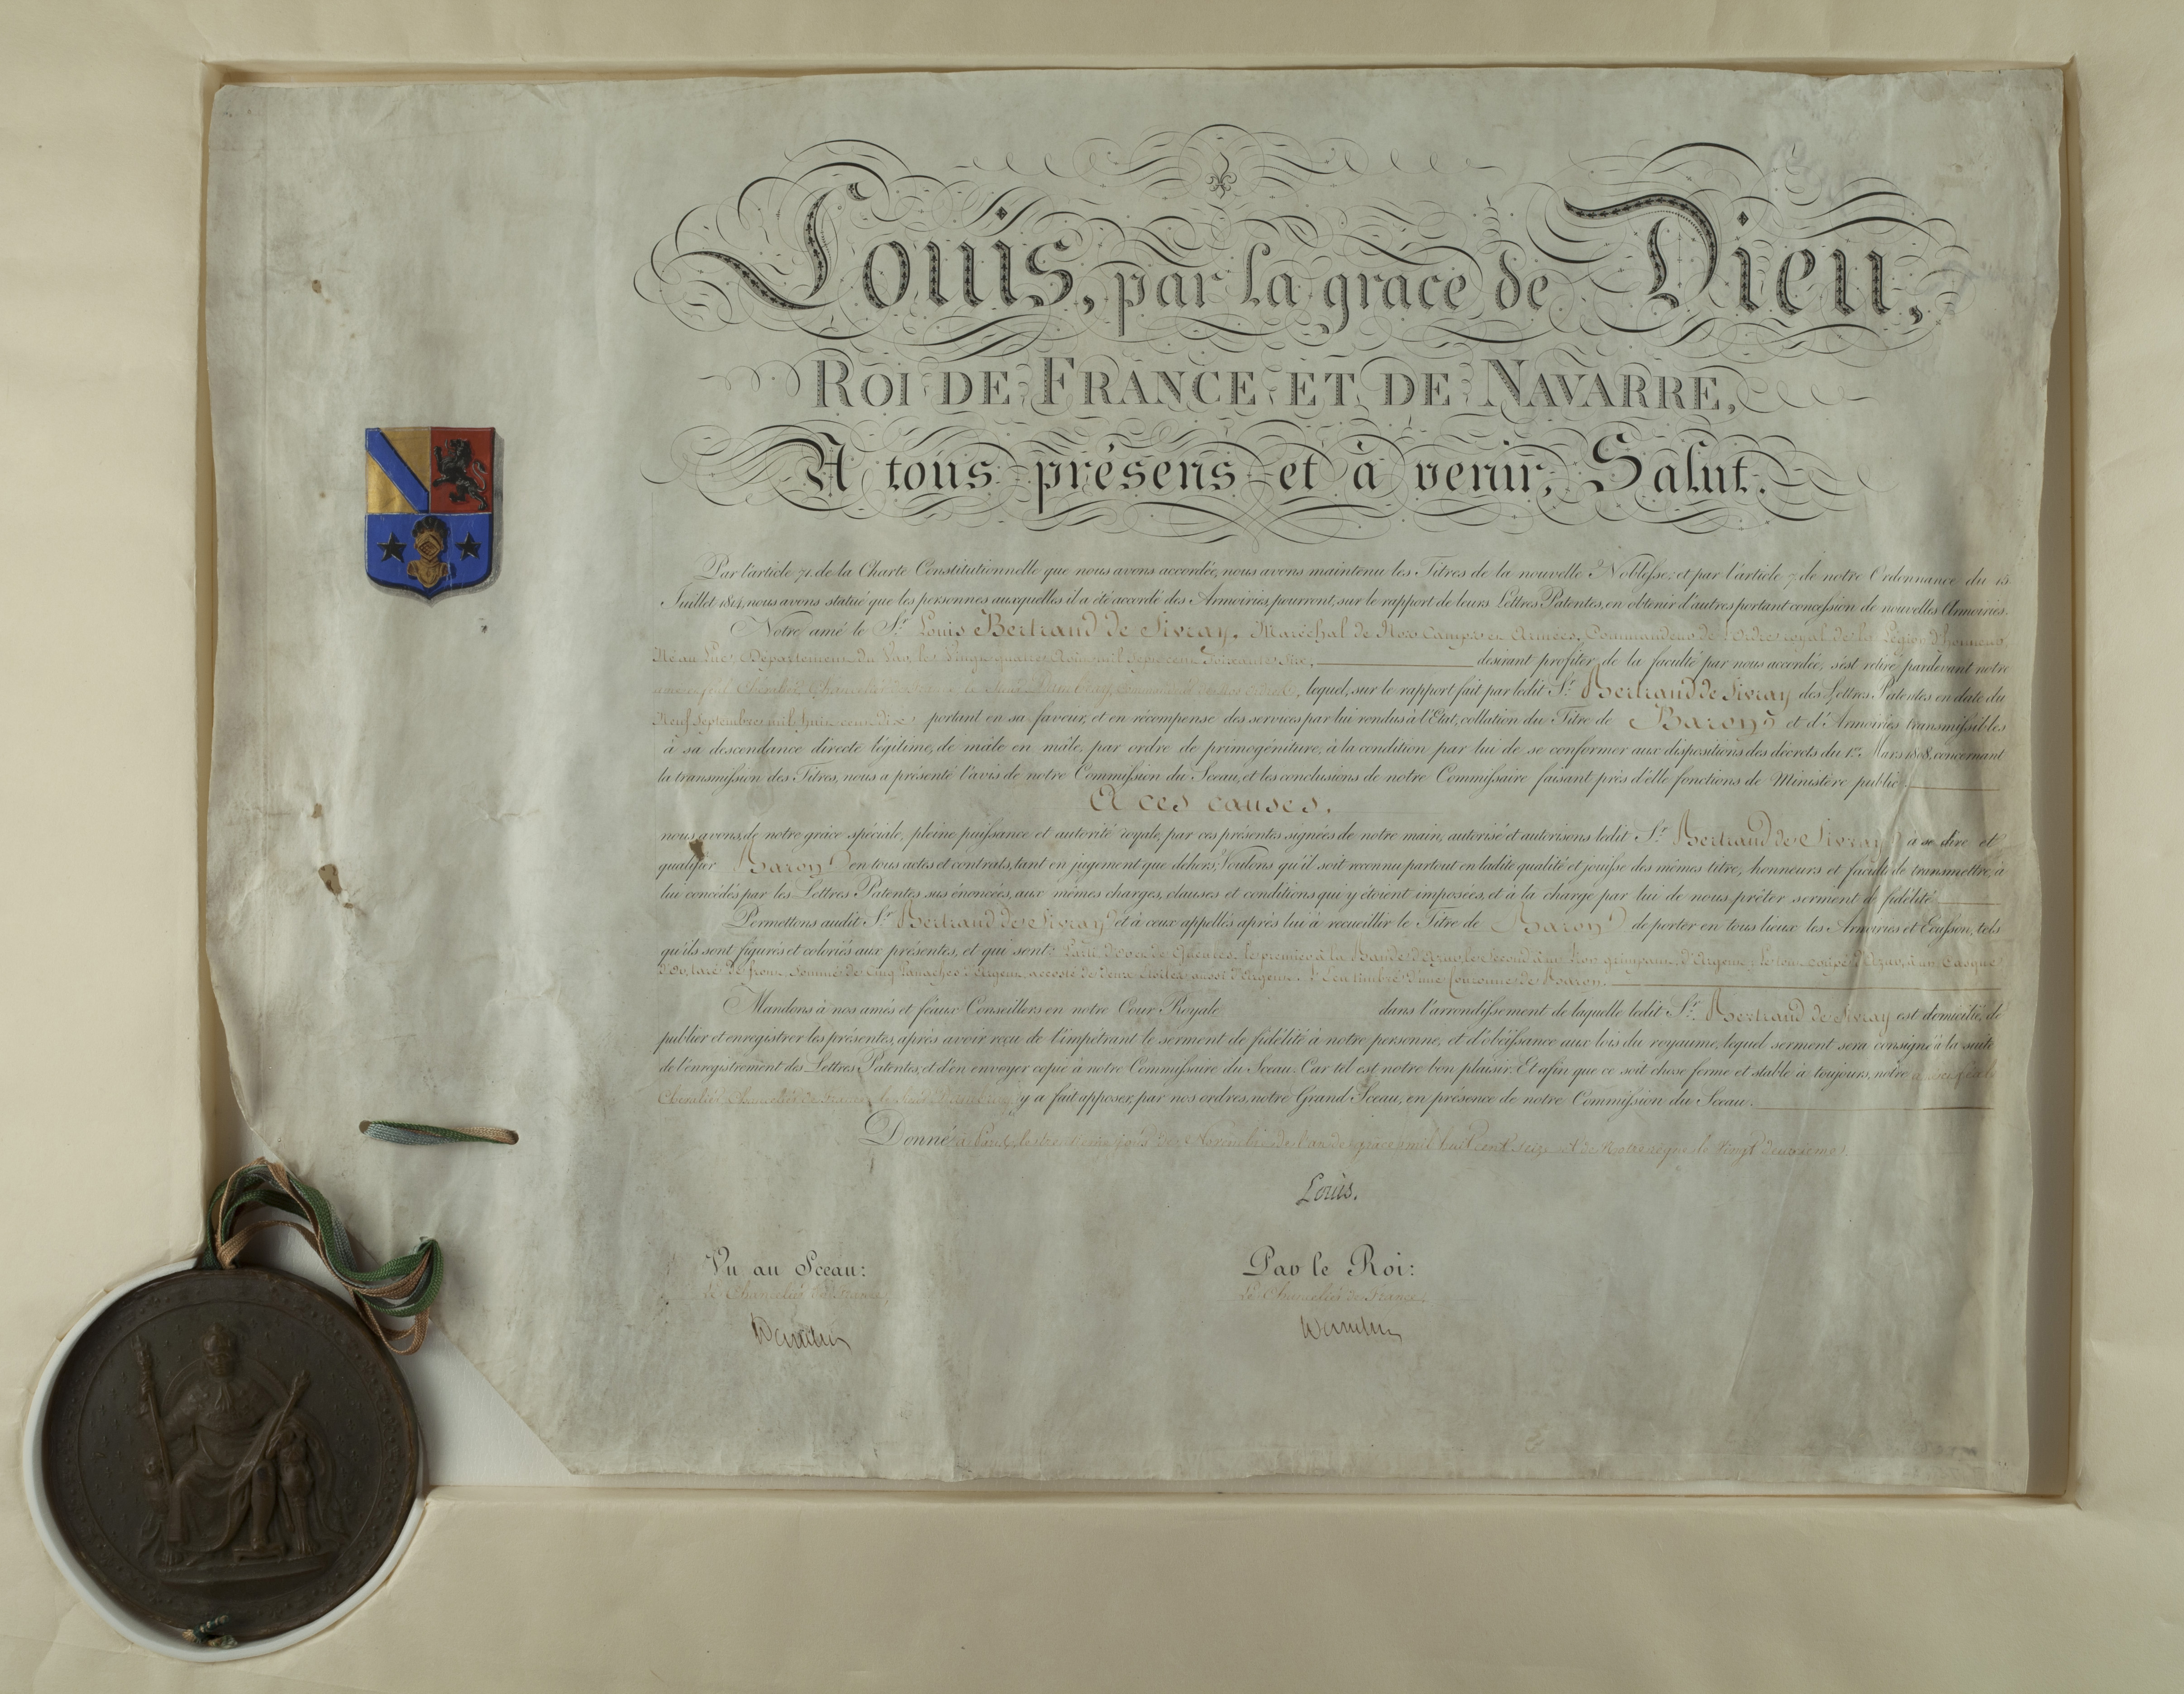 Louis, par la grace de Dieu,
ROI DE FRANCE ET DE NAVARRE,
A tous présens et à venir, Salut.
Par l'article 71. de la Charte Constitutionnelle que nous avons accordée, nous avons maintenu les Titres de la nouvelle Noblesse; et par l'article 7 de notre Ordonnance du 15
Juillet 1814, nous avons statué que les personnes auxquelles il a été accordé des Armoiries, pourront, sur le rapport de leurs Lettres Patentes, en obtenir d'autres portant concession de nouvelles Armoiries.
Notre amé le Sr. Louis Bertrand de Sivray, Maréchal de Nos Camps et Armées, Commandeur de l'Ordre royal de la Légion d'honneur,
Né au Luc, Département du Var, le Vingt quatre Août mil sept cent Soixante Six, desirant profiter de la faculté par nous accordée, s'est retiré pardevant notre
Chancelier lequel, sur le rapport fait par ledit Sr. Bertrand de Sivray des Lettres Patentes en date du
Neuf Septembre mil huit cent dix portant en sa faveur, et en récompense des services par lui rendus à l'Etat, collation du Titre de Baron et d'Armoiries transmissibles
à sa descendance directe légitime, de mâle en mâle, par ordre de primogéniture, à la condition par lui de se conformer aux dispositions des décrets du 1er. Mars 1808, concernant
la transmission des Titres, nous a présenté l'avis de notre Commission du Sceau, et les conclusions de notre Commissaire faisant près d'elle fonctions de Ministère public
A ces causes.
nous avons, de notre grâce spéciale, pleine puissance et autorité royale, par ces présentes signées de notre main, autorisé et autorisons ledit Sr. Bertrand de Sivray à se dire et
qualifier Baron en tous actes et contrats, tant en jugement que dehors; Voulons qu'il soit reconnu partout en ladite qualité et jouisse des mêmes titre, honneurs et faculté de transmettre, à
lui concédés par les Lettres Patentes sus énoncées, aux mêmes charges, clauses et conditions qui y étoient imposées, et à la charge par lui de nous prêter serment de fidélité
Permettons audit Sr. Bertrand de Sivray et à ceux appellés après lui à recueillir le Titre de Baron de porter en tous lieux les Armoiries et Ecusson, tels
qu'ils sont figurés et coloriés aux présentes, et qui sont: Parti d'or et de Gueules, le premier à la Bande d'Azur, le Second à un Lion grimpant d'Argent; le tout coupé d'Azur, à un Casque
d'Or, taré de front, Sommé de Cinq Panaches d'Argent, accosté de deux Étoiles aussi d'Argent. L'Ecu timbré d'une Couronne de Baron.
Mandons à nos amés et féaux Conseillers en notre Cour Royale dans l'arrondissement de laquelle ledit Sr. Bertrand de Sivray est domicilié, de
publier et enregistrer les présentes, après avoir reçu de l'impétrant le serment de fidélité à notre personne, et d'obéissance aux lois du royaume, lequel serment sera consigné à la suite
de l'enregistrement des Lettres Patentes, et d'en envoyer copie à notre Commissaire du Sceau. Car tel est notre bon plaisir. Et afin que ce soit chose ferme et stable à toujours, notre
Chevalier Chancelier de France, le y a fait apposer, par nos ordres, notre Grand Sceau, en présence de notre Commission du Sceau.
Donné à Paris, le jour de Novembre de l'an de grâce mil huit Cent seize et de Notre règne le Vingt deuxième
Louis.
Vu au Sceau: Par le Roi:
Le Chancelier de France Le Chancelier de France,